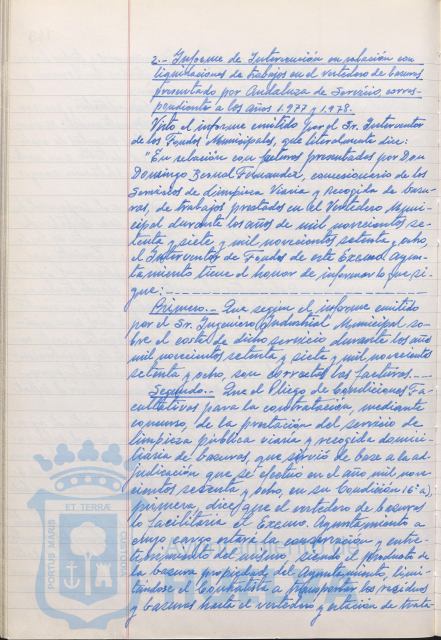 2.- Informe de Intervención en relación con
liquidaciones de trabajos en el vertedero de basuras
presentado por Andaluza de Servicio, corres-
pondiente a los años 1.977 y 1.978.
Visto el informe emitido por el Sr. Interventor
de los Fondos Municipales, que literalmente dice:
"En relación con facturas presentadas por Don
Domingo Bernal Fernandez, concesionario de los
Servicios de Limpieza Viaria y Recogida de basu-
ras, de trabajos prestados en el Vertedero Muni-
cipal durante los años de mil novecientos se-
tenta y siete y mil novecientos setenta y ocho,
el Interventor de Fondos de este Excmo. Ayun-
tamiento tiene el honor de informar lo que si-
gue:
Primero.- Que según el informe emitido
por el Sr. Ingeniero Industrial Municipal so-
bre el coste de dicho servicio durante los años
mil novecientos setenta y siete y mil novecientos
setenta y ocho, son correctas las facturas.
Segundo.- Que el Pliego de Condiciones Fa-
cultativas para la contratación, mediante
concurso, de la prestación del servicio de
limpieza pública viaria y recogida domici-
liaria de basuras, que sirvió de base a la ad-
judicación que se efectuó en el año mil nove-
cientos sesenta y ocho, en su Condición 16 a),
primera, dice, que el vertedero de basuras
lo facilitaría el Excmo. Ayuntamiento a
cuyo cargo estará la conservación y entre-
tenimiento del mismo, siendo el producto de
la basura propiedad del Ayuntamiento, limi-
tándose el Contratista a transportar los residuos
y basuras hasta el vertedero y estación de trata-
PORTUS MARIS
ET TERRÆ
CUSTODIA